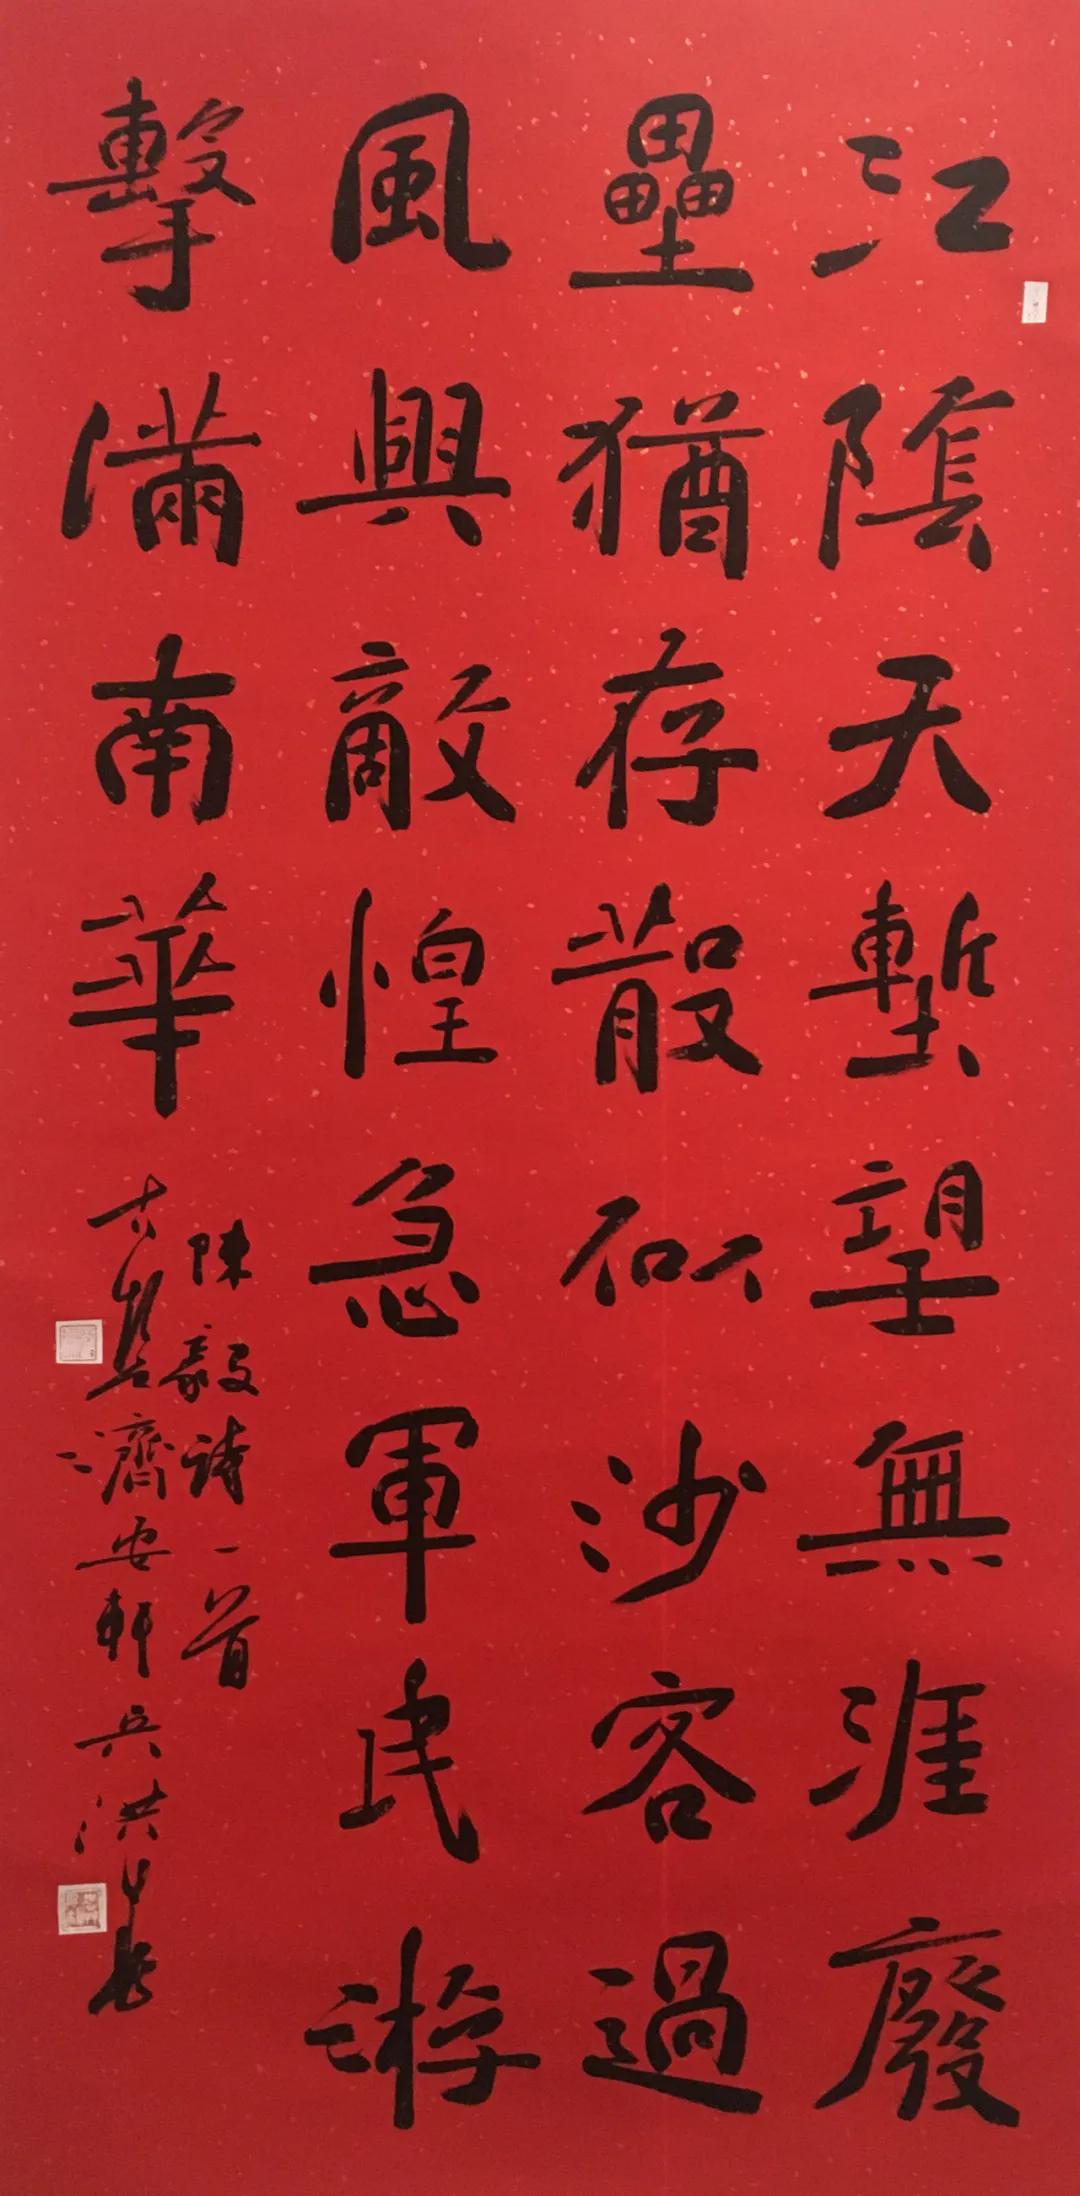 江陰天塹望無涯廢
壘猶存散似沙客過
風興敵惶急軍民游
擊滿南華
陳毅詩一首
古濟安軒兵洪